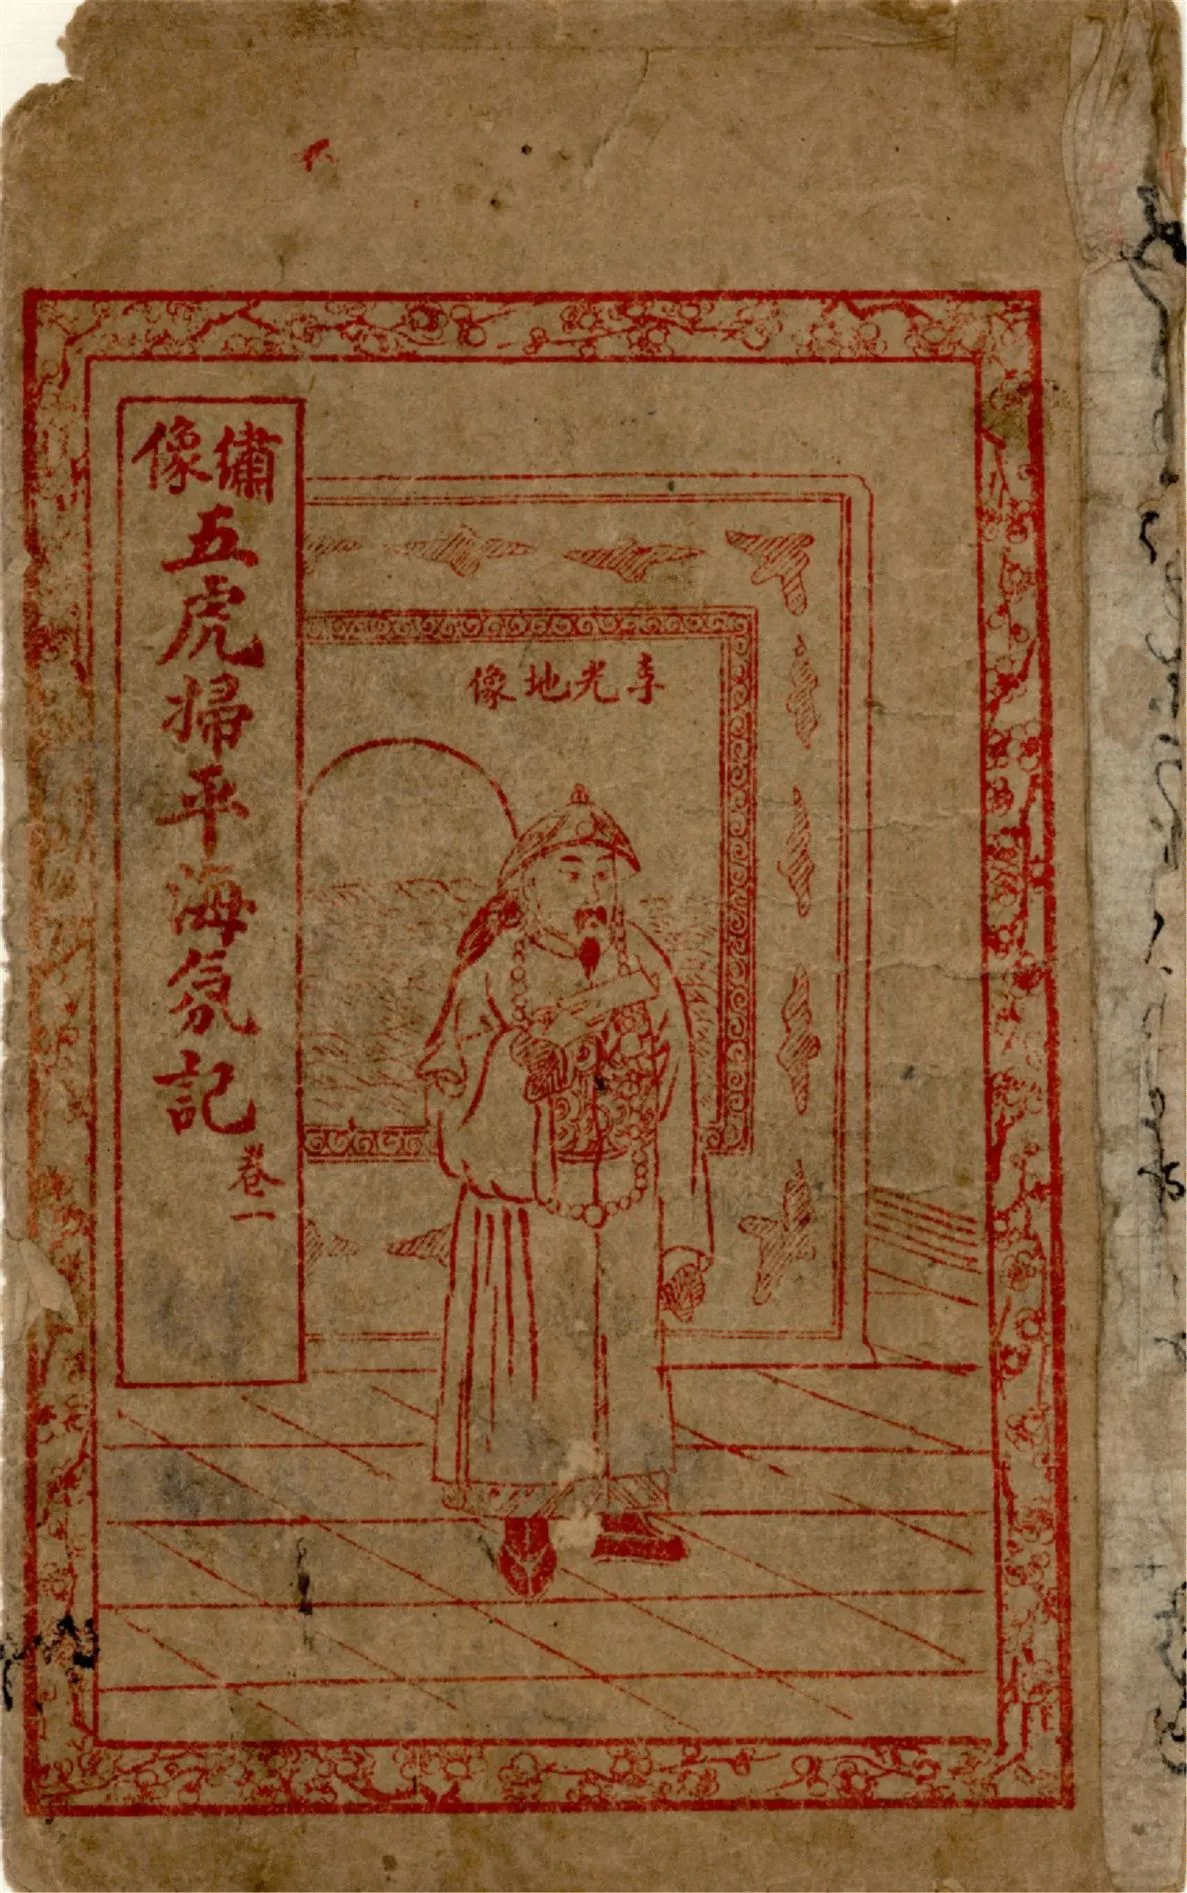 繡像
五虎掃平海氛記
卷一
李光地像